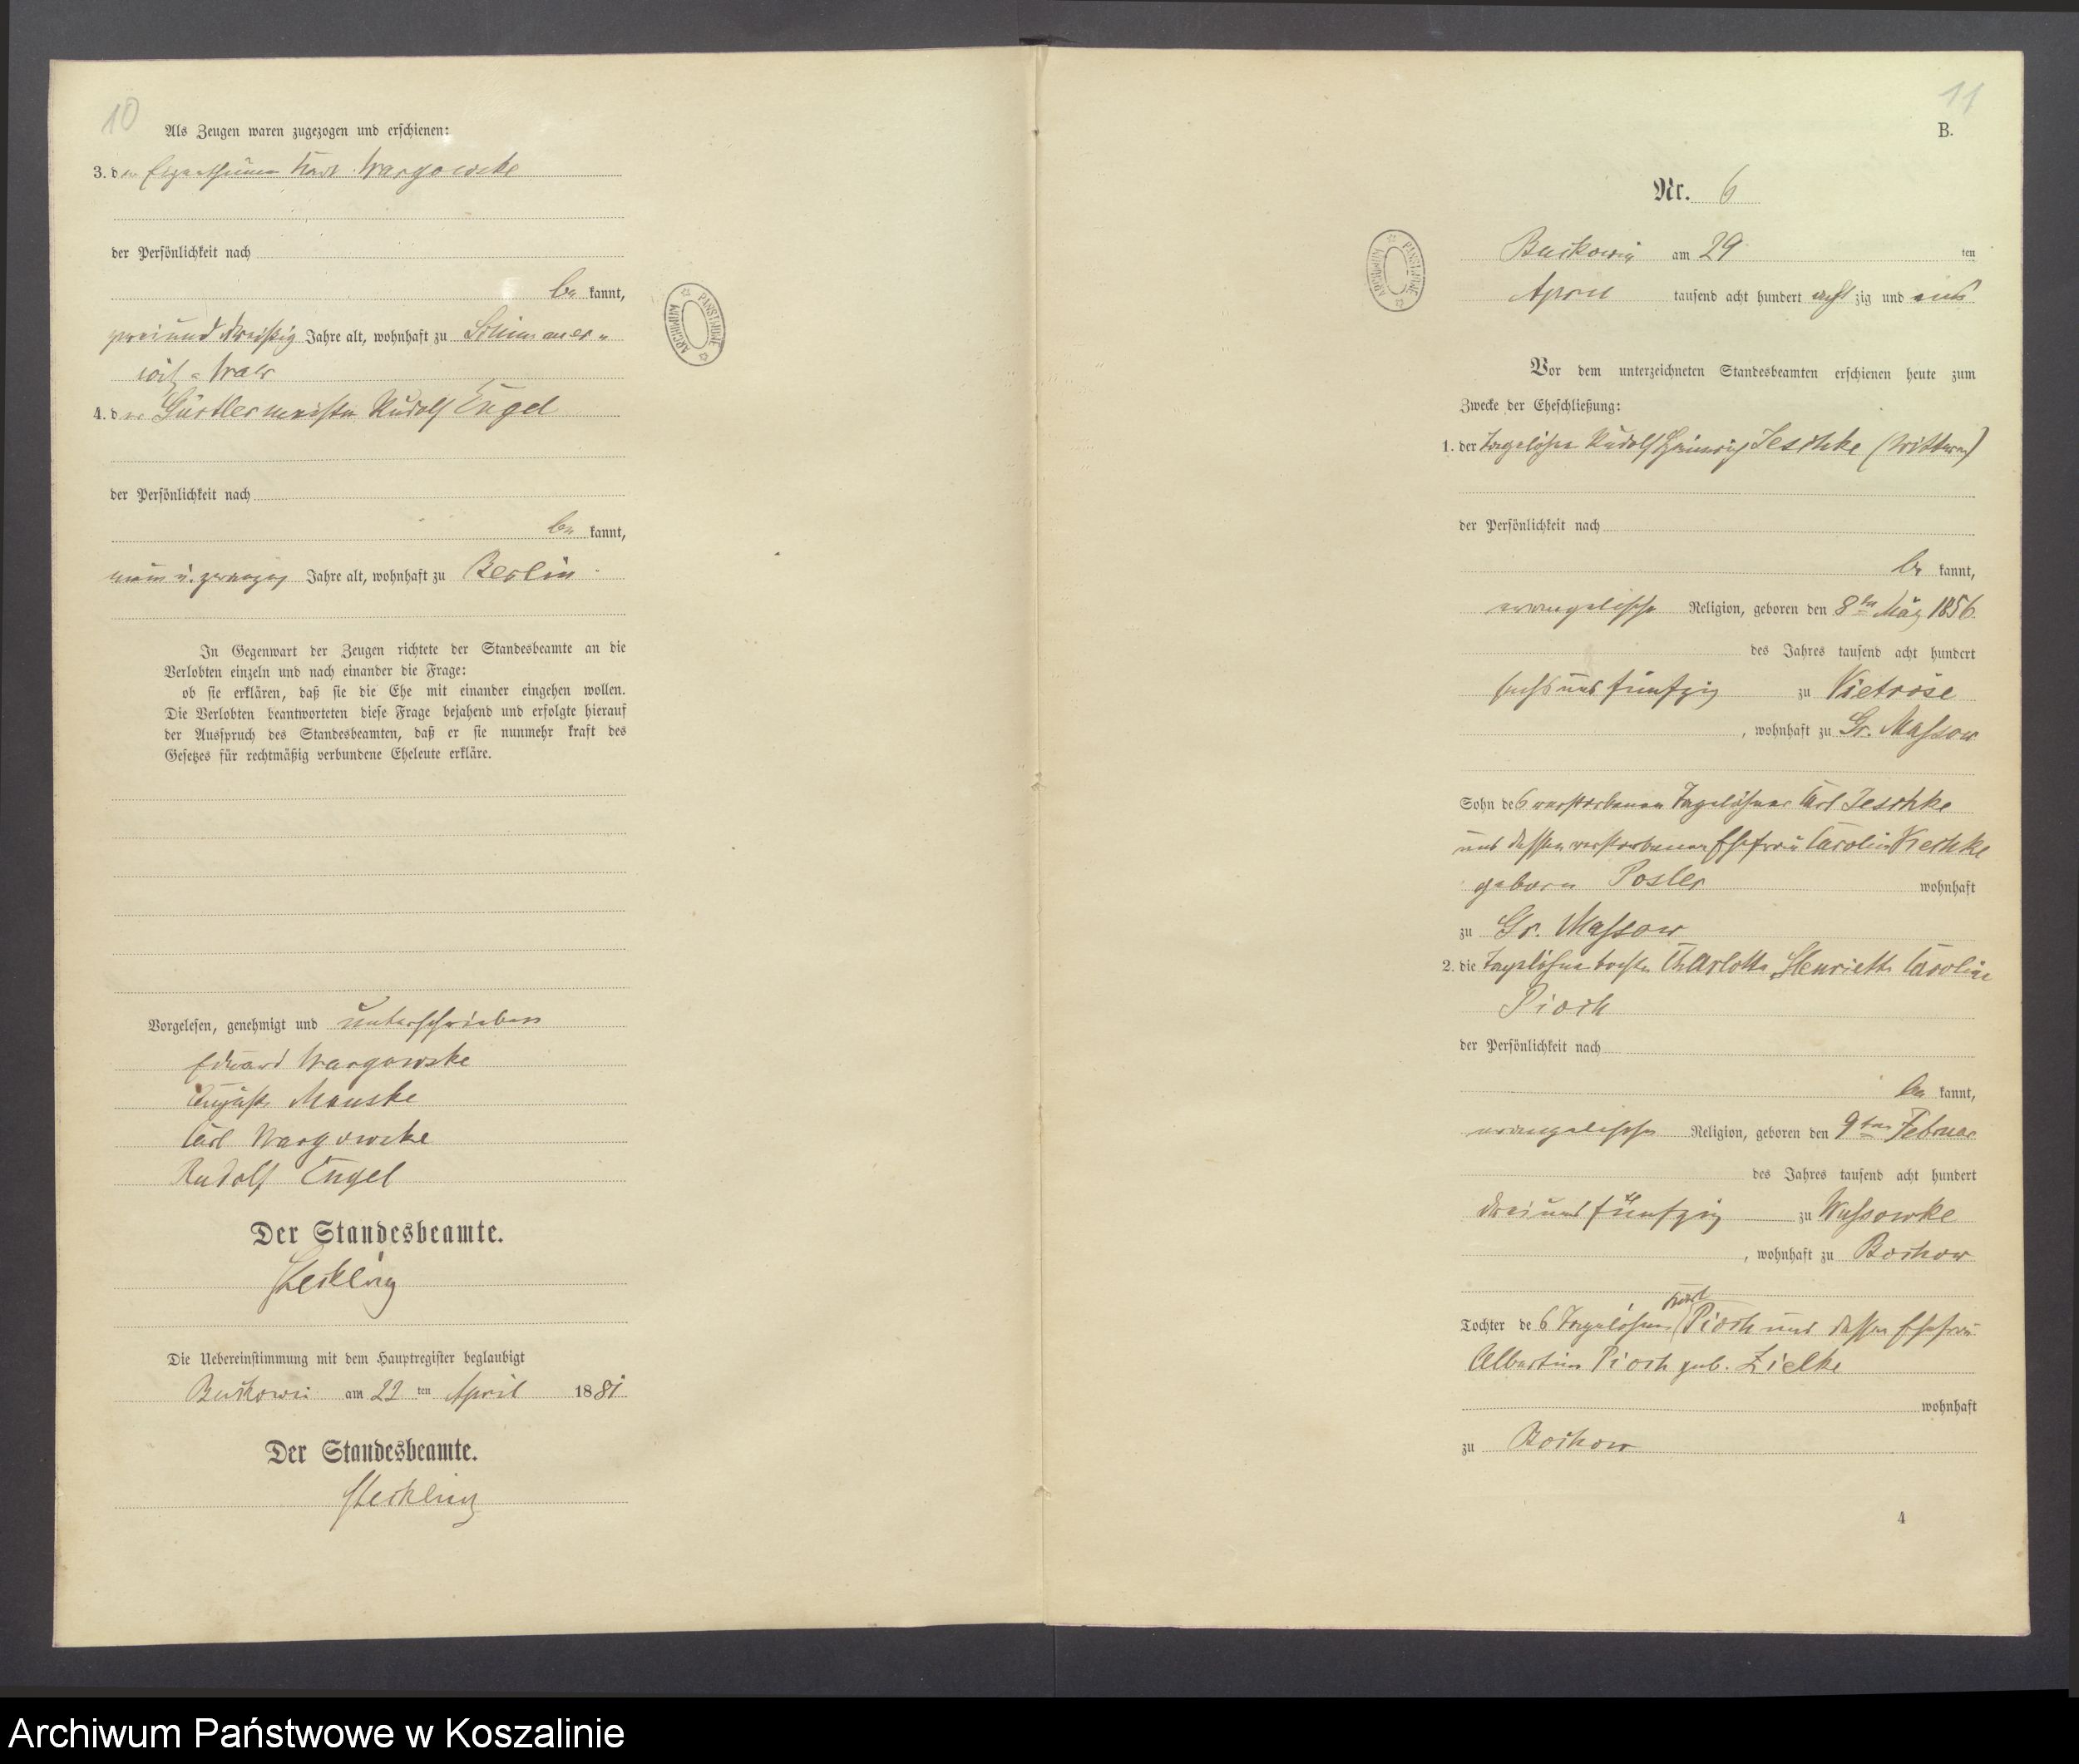 10
Als Zeugen waren zugezogen und erschienen:
3. der Eigenthümer Karl Wargowske
der Persönlichkeit nach
be kannt,
zwei und dreißig Jahre alt, wohnhaft zu Schimmer-
witz-Wald
4. der Gürtlermeister Rudolf Engel
der Persönlichkeit nach
be kannt,
neun u. zwanzig Jahre alt, wohnhaft zu Berlin
In Gegenwart der Zeugen richtete der Standesbeamte an die
Verlobten einzeln und nach einander die Frage:
ob sie erklären, daß sie die Ehe mit einander eingehen wollen.
Die Verlobten beantworteten diese Frage bejahend und erfolgte hierauf
der Ausspruch des Standesbeamten, daß er sie nunmehr kraft des
Gesetzes für rechtmäßig verbundene Eheleute erkläre.
Vorgelesen, genehmigt und unterschrieben
Eduard Wargowske
Auguste Manske
Carl Wargowske
Rudolf Engel
Der Standesbeamte.
Steckling
Die Uebereinstimmung mit dem Hauptregister beglaubigt
Buckowin am 22 ten April 1881
Der Standesbeamte.
Steckling
ARCHIWUM PAŃSTWOWE
11
B.
Nr. 6
ARCHIWUM PAŃSTWOWE
Buckowin am 29 ten
April tausend acht hundert acht zig und eins
Vor dem unterzeichneten Standesbeamten erschienen heute zum
Zwecke der Eheschließung:
1. der Tagelöhner Rudolf Heinrich Jeschke (Wittwer)
der Persönlichkeit nach
be kannt,
evangelischer Religion, geboren den 8ten März 1856
des Jahres tausend acht hundert
sechs und fünfzig zu Vietröse
, wohnhaft zu Gr. Massow
Sohn des verstorbenen Tagelöhner Carl Jeschke
und dessen verstorbenen Ehefrau Carolin Jeschke
geborn Posler wohnhaft
zu Gr. Massow
2. die Tagelöhnertochter Charlotte Henriette Caroline
Pioch
der Persönlichkeit nach
be kannt,
evangelischer Religion, geboren den 9ten Februar
des Jahres tausend acht hundert
drei und fünfzig zu Wussowke
, wohnhaft zu Bochow
Tochter des Tagelöhner Karl Pioch und dessen Ehefrau
Albertine Pioch geb. Zielke
wohnhaft
zu Bochow
4
Archiwum Państwowe w Koszalinie